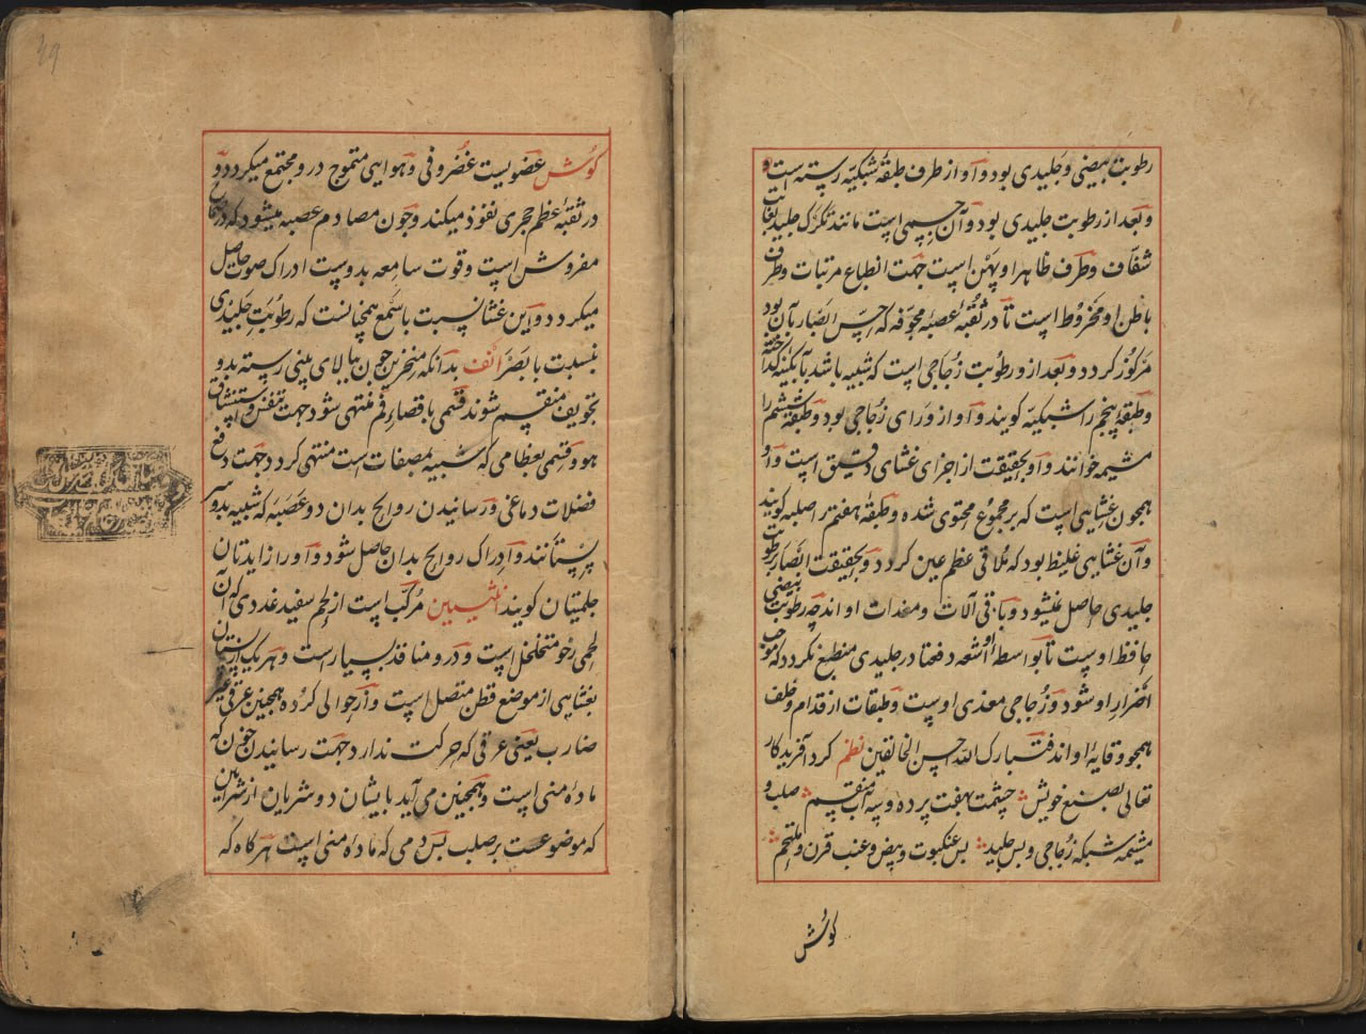 رطوبت بیضی و جلیدی بود و او از طرف طبقهٔ شبکیه رسته است و
و بعد از رطوبت جلیدی بود و آن جسمی است مانند تگرک جلید بغایت
شفاف و طرف ظاهر او پهن است جهت انطباع مرتبات و طرف
باطن او مخروط است تا در ثقبهٔ عصبهٔ مجوفه که حس ابصار بآن بود
مرکوز کردد و بعد ازو رطوبت زجاجی است که شبیه باشد بآبکینه کداخته
و طبقهٔ پنجم را شبکیه کویند و او از ورای زجاجی بود و طبقهٔ ششم را
مشیمه خوانند و او بحقیقت از اجزای غشای دقیق است و او
همچون غشایی است که بر مجموع محتوی شده و طبقهٔ هفتم را صلبه کویند
و آن غشایی غلیظ بود که ملاقی عظم عین کردد و بحقیقت ابصار برطوبت
جلیدی حاصل میشود و باقی آلات و معدات او اند چه رطوبت بیضی
حافظ اوست تا بواسطهٔ او اشعه دفعتا در جلیدی منطبع نکردد که موجب
اضرار او شود و زجاجی مغذی اوست و طبقات از قدام و خلف
همچو وقایهٔ او اند فتبارک الله احسن الخالقین نظم کرد آفریدکار
تعالی بصنع خویش چشمت بهفت پرده و سه آب منقسم صلب و
مشیمه شبکه زجاجی و پس جلید پس عنکبوت و بیض و عنب قرن و ملتحم
کوش
کوش عضویست غضروفی و هوایی متموج درو مجتمع میکردد و
در ثقبهٔ اعظم حجری نفوذ میکند و چون مصادم عصبه میشود که در صماخ
مفروش است و قوت سامعه بدوست ادراک صوت حاصل
میکردد و این غشا نسبت با سمع همچنانست که رطوبت جلیدی
نسبت با بصر انف بدانکه منخرین چون ببالای بینی رسته بدو
تجویف منقسم شوند قسمی باقصاء فم منتهی شود جهت تنفس و استنشاق
هوا و قسمی بعظامی که شبیه بمصفات است منتهی کردد جهت دفع
فضلات دماغی و رسانیدن روایح بدان دو عصبه که شبیه بدو سر
پستانند و ادراک روایح بدان حاصل شود و او را زایدتان
حلمیتان کویند انثیین مرکب است از لحم سفید غددی که آن
لحمی رخو متخلخل است و درو منافذ بسیارست و هر یک ازیشان
بغشایی از موضع قطن متصل است و از حوالی کرده همچنین عرقی غیر
ضارب یعنی عرقی که حرکت ندارد جهت رسانیدن خون که
مادهٔ منی است و همچنین می آید بایشان دو شریان از شریان
که موضوعست بر صلب پس دمی که مادهٔ منی است هر کاه که